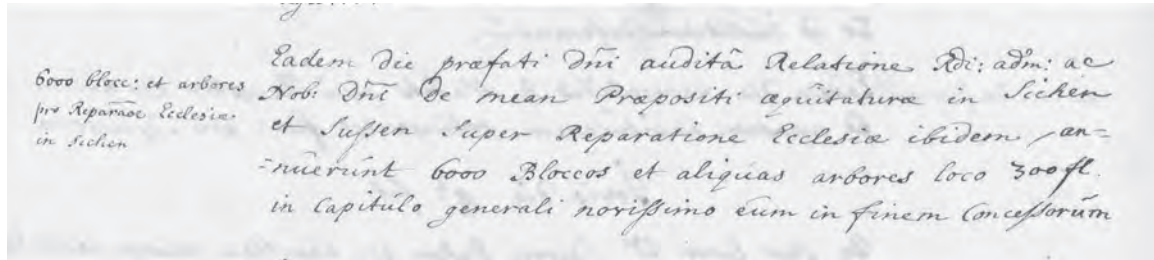 6000 blocc: et arbores
pro Reparaõe Ecclesiæ
in Sichen
Eadem Die præfati Dñi auditâ Relatione Rdi: adm: ac
Nob: Dñi De mean Præpositi æquitaturæ in Sichen
et Sussen Super Reparatione Ecclesiæ ibidem, an=
=nuerunt 6000 Bloccos et aliquas arbores loco 300 fl.
in Capitulo generali novissimo eum in finem Concessorum